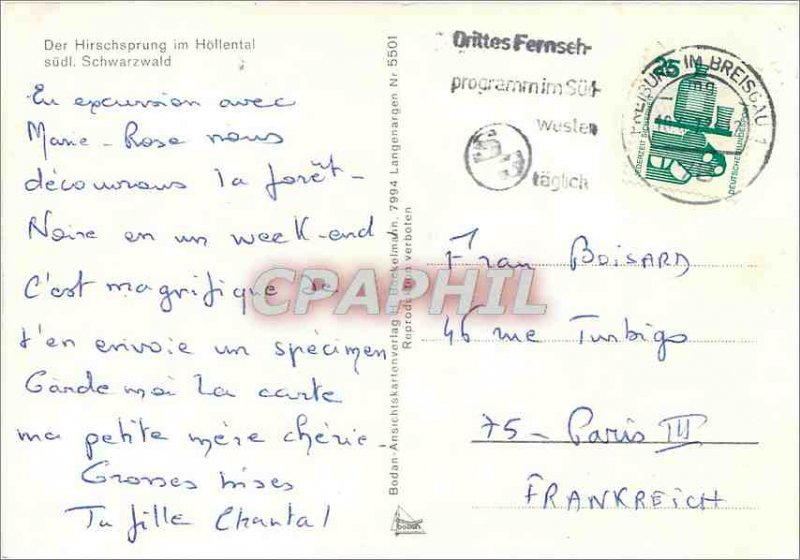 Der Hirschsprung im Höllental
südl. Schwarzwald
En excursion avec
Marie-Rose nous
découvrons la forêt-
Noire en un week-end
C'est magnifique Je
t'en envoie un spécimen
Garde moi la carte
ma petite mère chérie-
Grosses bises
Ta fille Chantal
Bodan-Ansichtskartenverlag H. Bockelmann, 7994 Langenargen Nr 5501
Reproduktion verboten
bodan
CPAPHIL
Drittes Fernseh-
programm im Süd-
westen
S3
täglich
FREIBURG IM BREISGAU 1
35
JEDERZEIT SICHERHEIT
DEUTSCHE BUNDESPOST
Frau BOISARD
46 rue Turbigo
75- Paris III
FRANKREICH